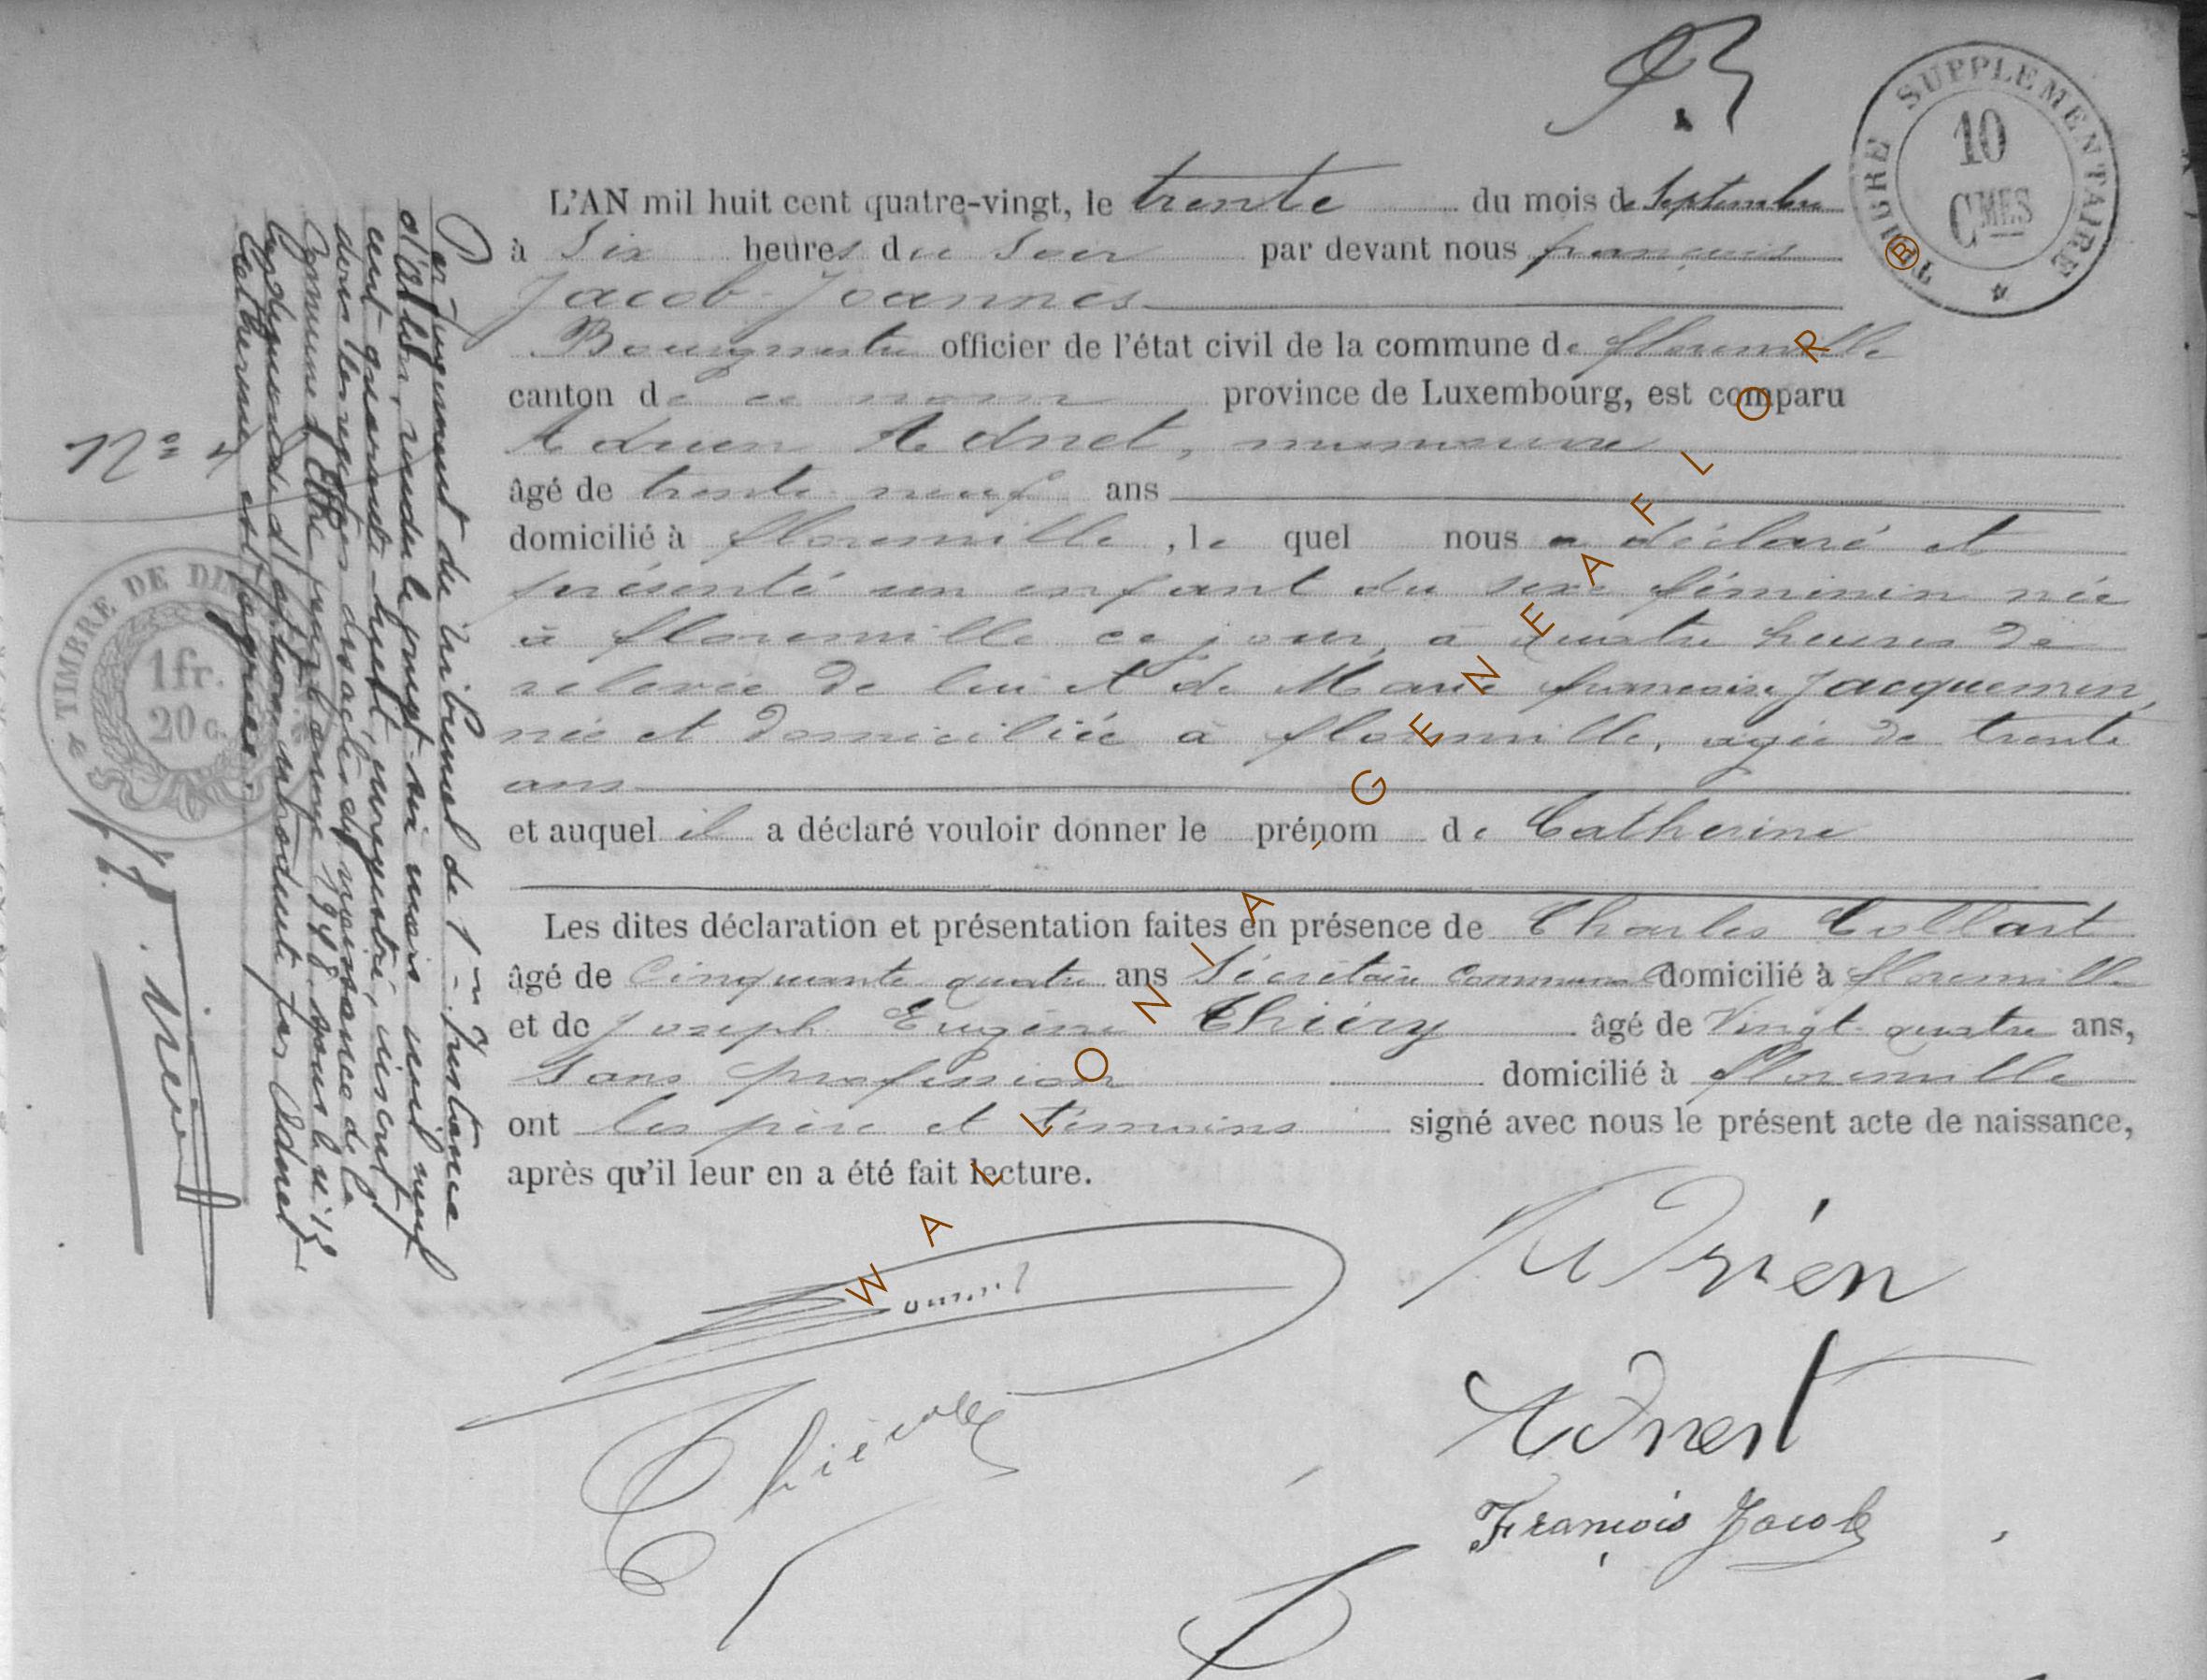 TIMBRE SUPPLEMENTAIRE
10
CMES
L'AN mil huit cent quatre-vingt, le trente du mois de Septembre
à Six heures du Soir par devant nous françois
Jacob-Joannès
Bourgmestre officier de l'état civil de la commune de florenville
canton de ce nom province de Luxembourg, est comparu
Adrien Adnet, manoeuvre
âgé de trente-neuf ans
domicilié à florenville, le quel nous a déclaré et
présenté un enfant du sexe féminin née
à florenville ce jour, à quatre heures de
relevée de lui et de Marie françoise Jacquemin,
née et domiciliée à florenville, agée de trente
ans
et auquel il a déclaré vouloir donner le prénom de Catherine
Les dites déclaration et présentation faites en présence de Charles Collart
âgé de Cinquante quatre ans Sécrétaire Communal domicilié à florenville
et de Joseph Eugène Thiéry âgé de Vingt-quatre ans,
Sans profession domicilié à florenville
ont les père et témoins signé avec nous le présent acte de naissance,
après qu'il leur en a été fait lecture.
Adrien
Adnet
François Jacob
Nº 4
TIMBRE DE
1 fr.
20 c.
Par Jugement du tribunal de 1re Instance
d'Arlon, rendu le vingt-six mars mil neuf
cent quarante-huit, enregistré, inscrit
dans les registres des actes de naissance de la
Commune d'Ethe pour l'année 1948 sous le n° 13
d'adoption introduite par Adnet
Catherine est
WALLONIA-GENEAFLOR
®